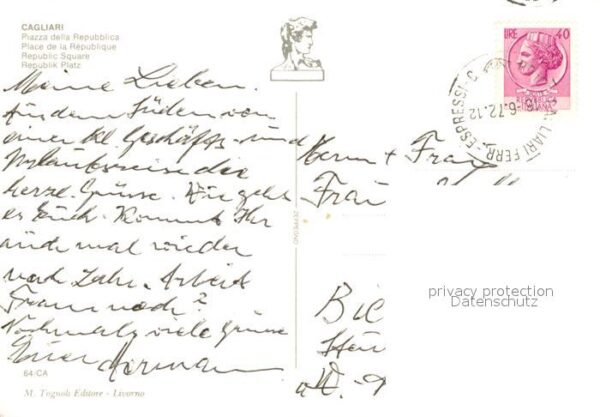 CAGLIARI
Piazza della Repubblica
Place de la République
Republic Square
Republik Platz
Meine Lieben.
Aus dem Süden von
einer kl. Geschäfts- und
Urlaubsreise die
herzl. Grüsse. Wie geht
es Euch. Kommt Ihr
auch mal wieder
nach Arbeit
Frau noch?
Nochmals viele Grüsse
Euer Hermann
64/CA
M. Tognoli Editore - Livorno
LIRE 40
CAGLIARI FERR.-ESPRESSI-C
16-6.72.12
Herrn + Frau
Frau
privacy protection
Datenschutz
Bie